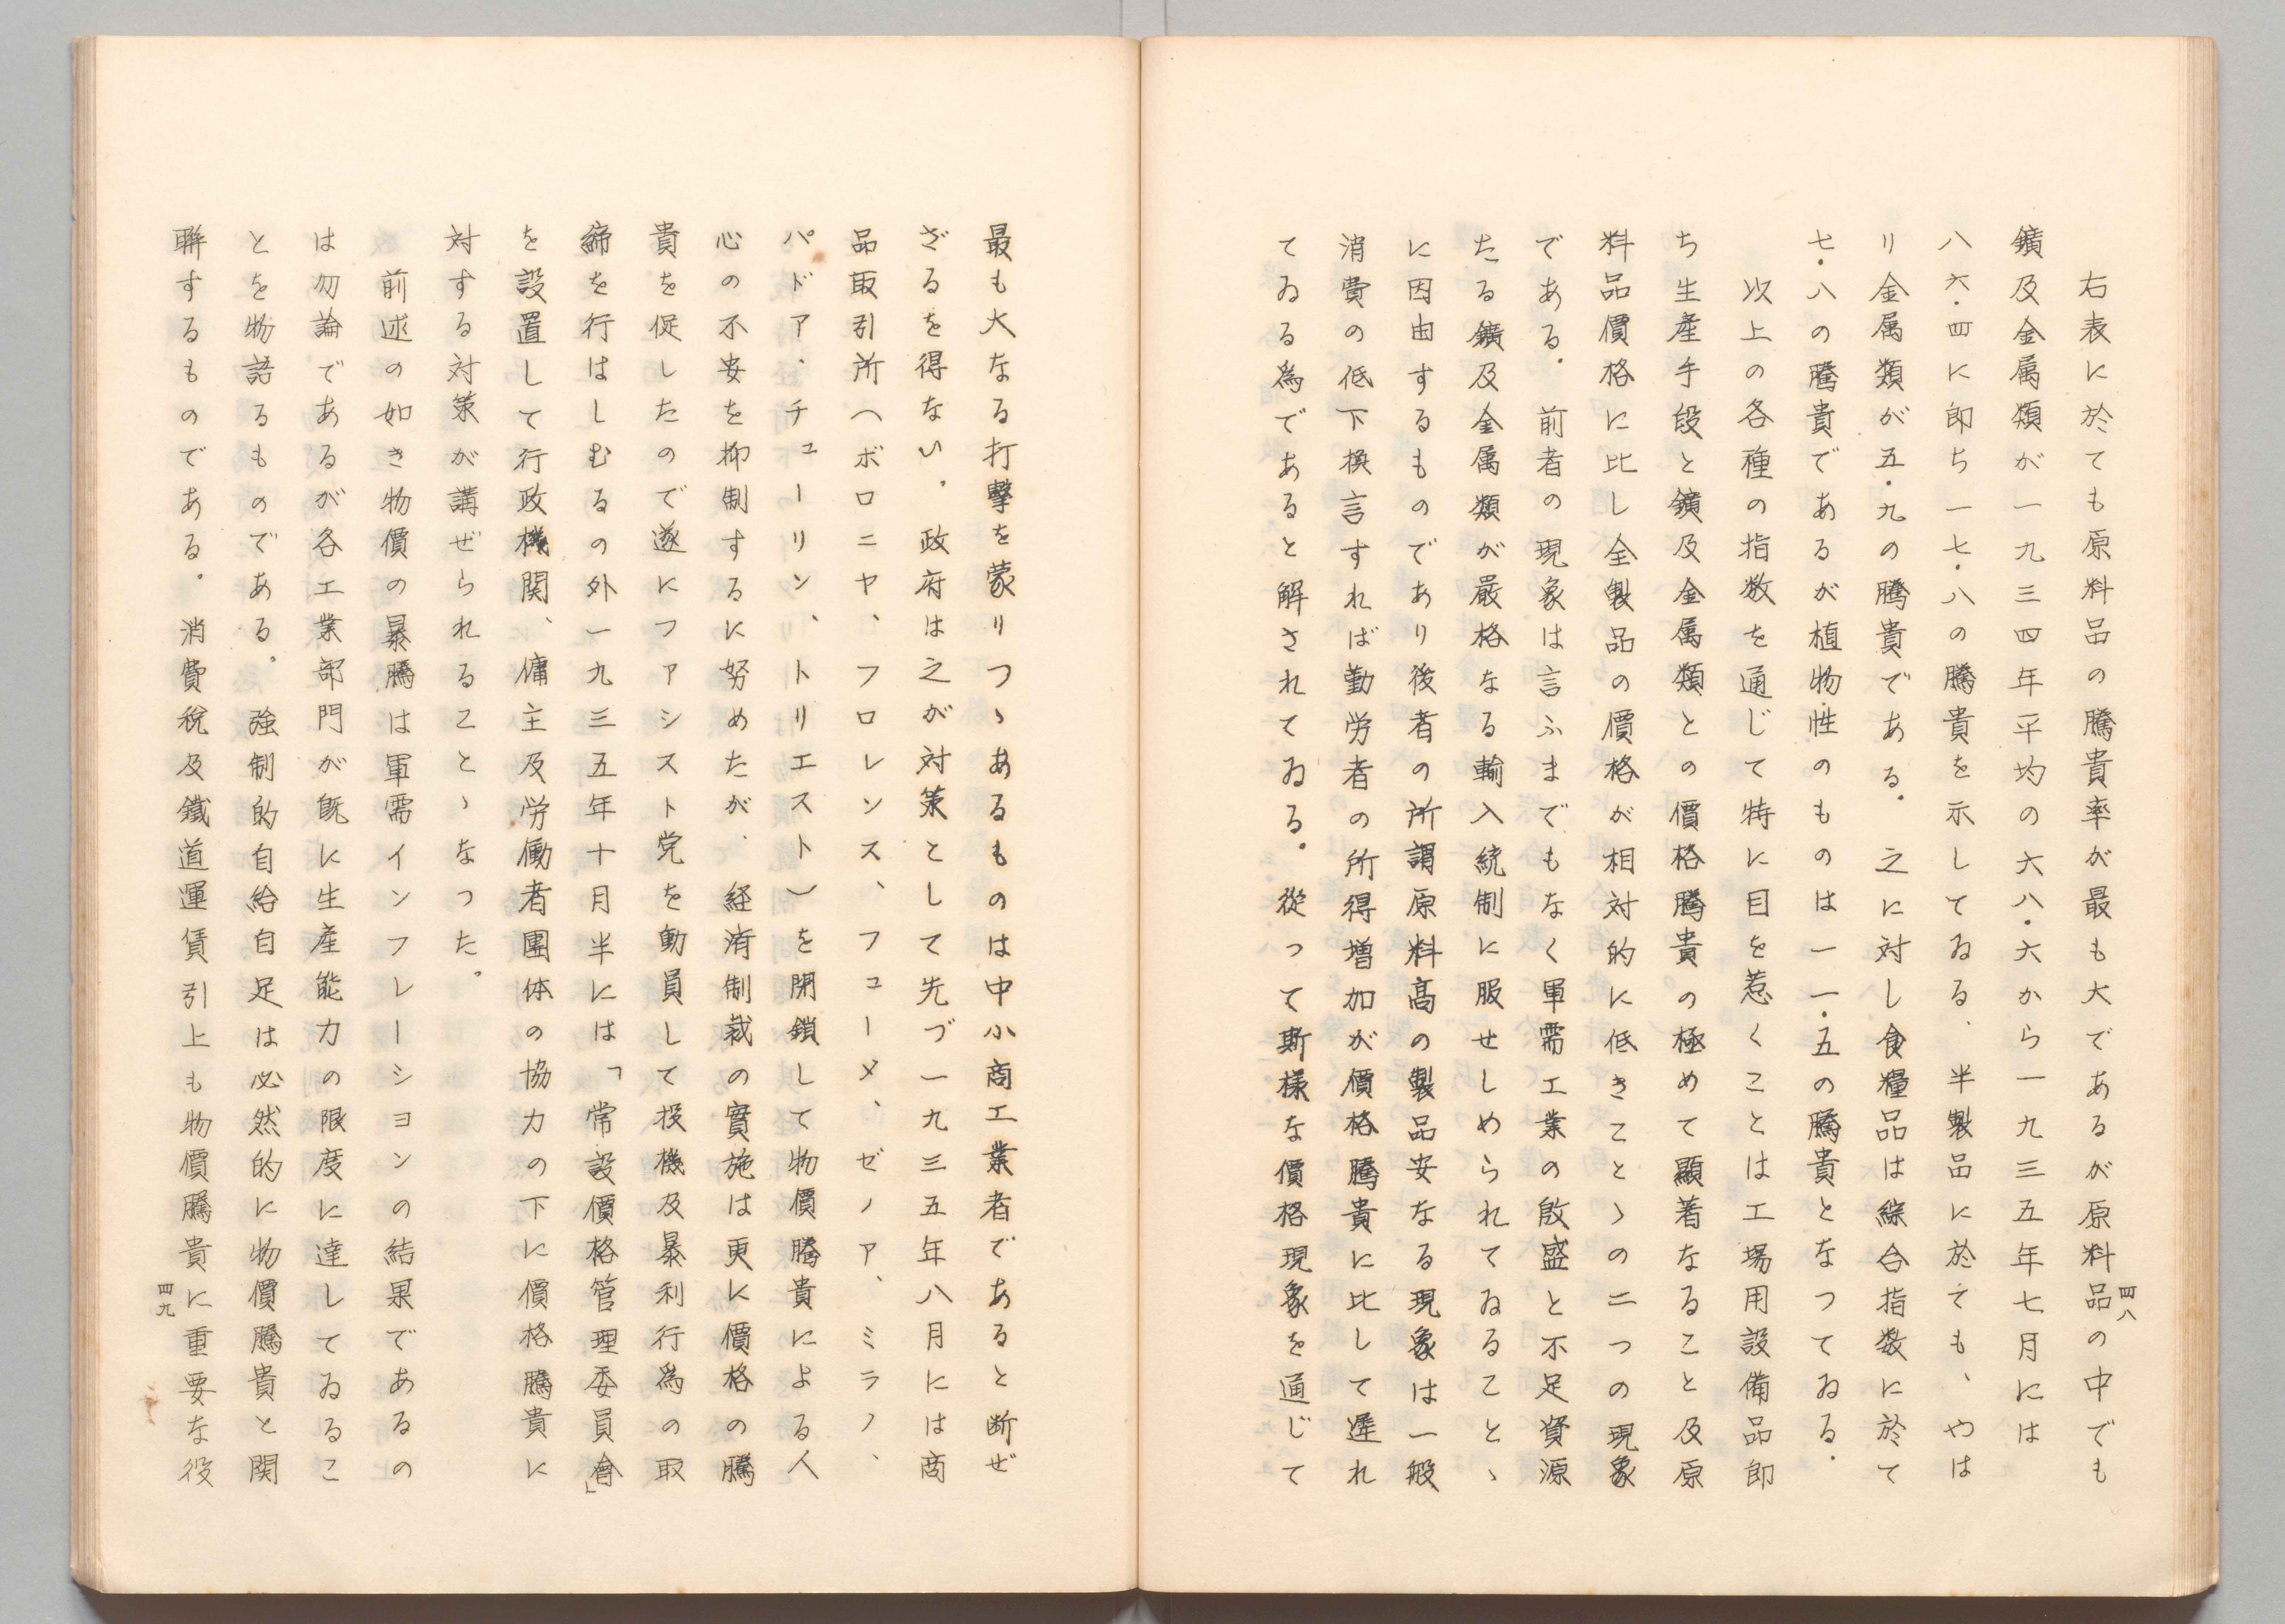 四八
右表に於ても原料品の騰貴率が最も大であるが原料品の中でも
鑛及金属類が一九三四年平均の六八・六から一九三五年七月には
八六・四に即ち一七・八の騰貴を示してゐる、半製品に於ても、やは
リ金属類が五・九の騰貴である。之に対し食糧品は綜合指数に於て
七・八の騰貴であるが植物性のものは一一・五の騰貴となつてゐる。
以上の各種の指数を通じて特に目を惹くことは工場用設備品即
ち生産手段と鑛及金属類との價格騰貴の極めて顯著なること及原
料品價格に比し全製品の價格が相対的に低きことゝの二つの現象
である。前者の現象は言ふまでもなく軍需工業の殷盛と不足資源
たる鑛及金属類が嚴格なる輸入統制に服せしめられてゐることゝ
に因由するものであり後者の所謂原料高の製品安なる現象は一般
消費の低下換言すれば勤労者の所得増加が價格騰貴に比して遅れ
てゐる為であると解されてゐる。從って斯様な價格現象を通じて
最も大なる打擊を蒙りつゝあるものは中小商工業者であると断ぜ
ざるを得ない。政府は之が対策として先づ一九三五年八月には商
品取引所（ボロニヤ、フロレンス、フューメ、ゼノア、ミラノ、
パドア、チューリン、トリエスト）を閉鎖して物價騰貴による人
心の不安を抑制するに努めたが、経済制裁の實施は更に價格の騰
貴を促したので遂にファシスト党を動員して投機及暴利行為の取
締を行はしむるの外一九三五年十月半には「常設價格管理委員會」
を設置して行政機関、傭主及労働者團体の協力の下に價格騰貴に
対する対策が講ぜられることゝなつた。
前述の如き物價の暴騰は軍需インフレーシヨンの結果であるの
は勿論であるが各工業部門が既に生産能力の限度に達してゐるこ
とを物語るものである。強制的自給自足は必然的に物價騰貴と関
聯するものである。消費税及鐵道運賃引上も物價騰貴に重要な役
四九